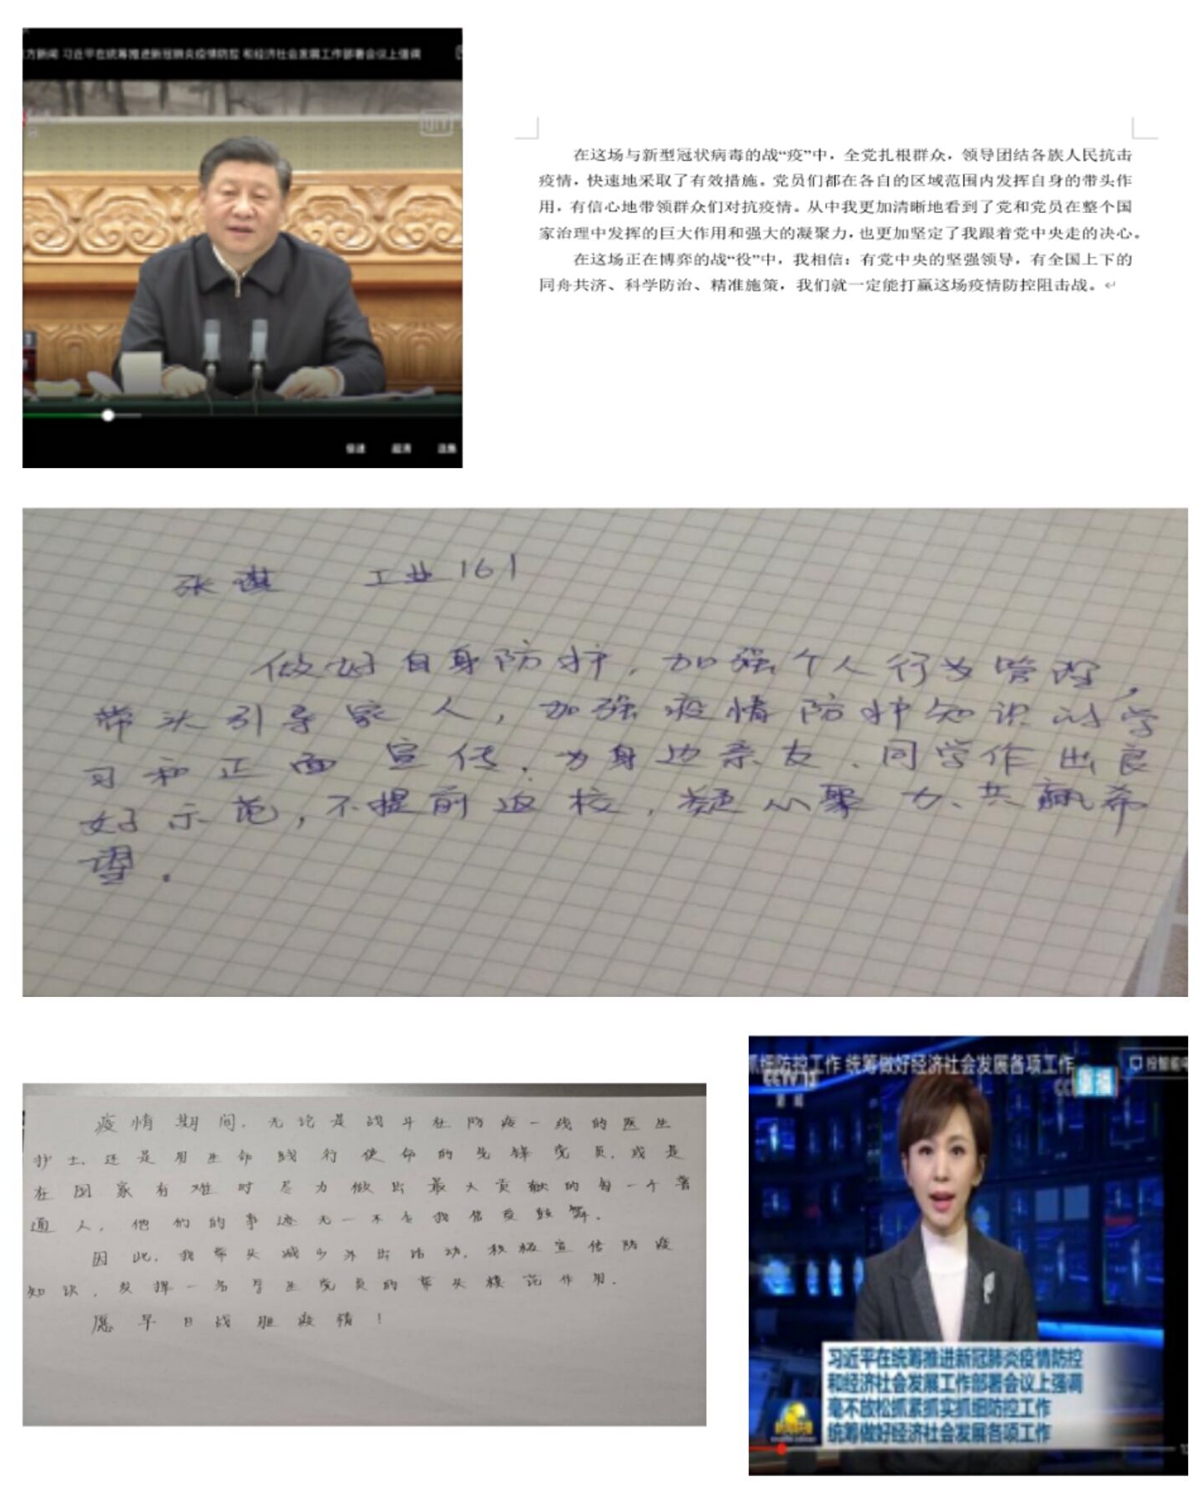 方新闻 习近平在统筹推进新冠肺炎疫情防控 和经济社会发展工作部署会议上强调
倍速 超清 选集
在这场与新型冠状病毒的战“疫”中，全党扎根群众，领导团结各族人民抗击
疫情，快速地采取了有效措施。党员们都在各自的区域范围内发挥自身的带头作
用，有信心地带领群众们对抗疫情。从中我更加清晰地看到了党和党员在整个国
家治理中发挥的巨大作用和强大的凝聚力，也更加坚定了我跟着党中央走的决心。
在这场正在博弈的战“役”中，我相信：有党中央的坚强领导，有全国上下的
同舟共济、科学防治、精准施策，我们就一定能打赢这场疫情防控阻击战。
张琪 工业161
做好自身防护，加强个人行为管理，
带头引导家人，加强疫情防护知识的学
习和正面宣传，为身边亲友、同学作出良
好示范，不提前返校，凝心聚力、共赢希
望。
疫情期间，无论是战斗在防疫一线的医生
护士，还是用生命践行使命的先锋党员，或是
在国家有难时尽力做出最大贡献的每一个普
通人，他们的事迹无一不令我倍受鼓舞。
因此，我带头减少外出活动，积极宣传防疫
知识，发挥一名学生党员的带头模范作用。
愿早日战胜疫情！
抓细防控工作 统筹做好经济社会发展各项工作
CCTV 13
新闻
习近平在统筹推进新冠肺炎疫情防控
和经济社会发展工作部署会议上强调
毫不放松抓紧抓实抓细防控工作
统筹做好经济社会发展各项工作
新闻联播